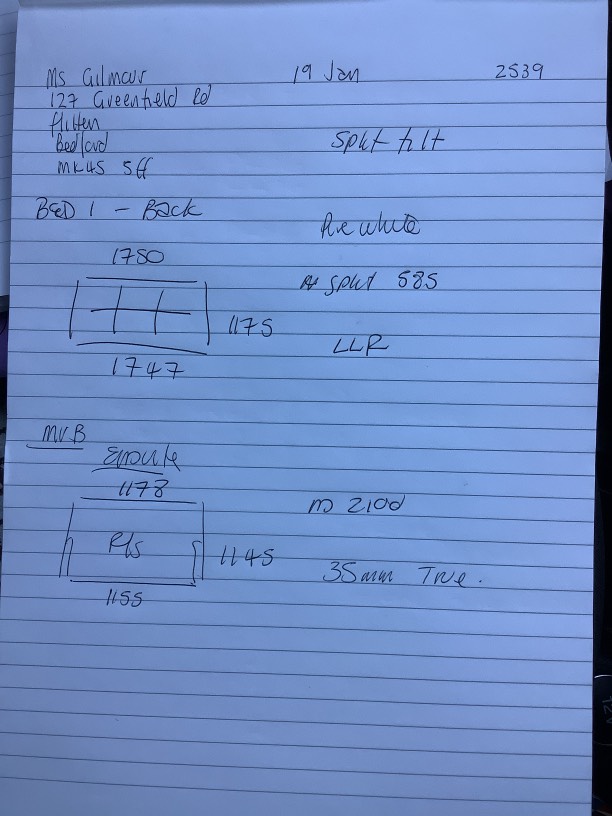 Ms Gilmour 19 Jan 2539
127 Greenfield Rd
flitten
Bedford
MK45 5ff
Split tilt
BED 1 - Back
Pure white
1750
split 585
1175
LLR
1747
MVB
1178
2100
1145
35mm True.
1155